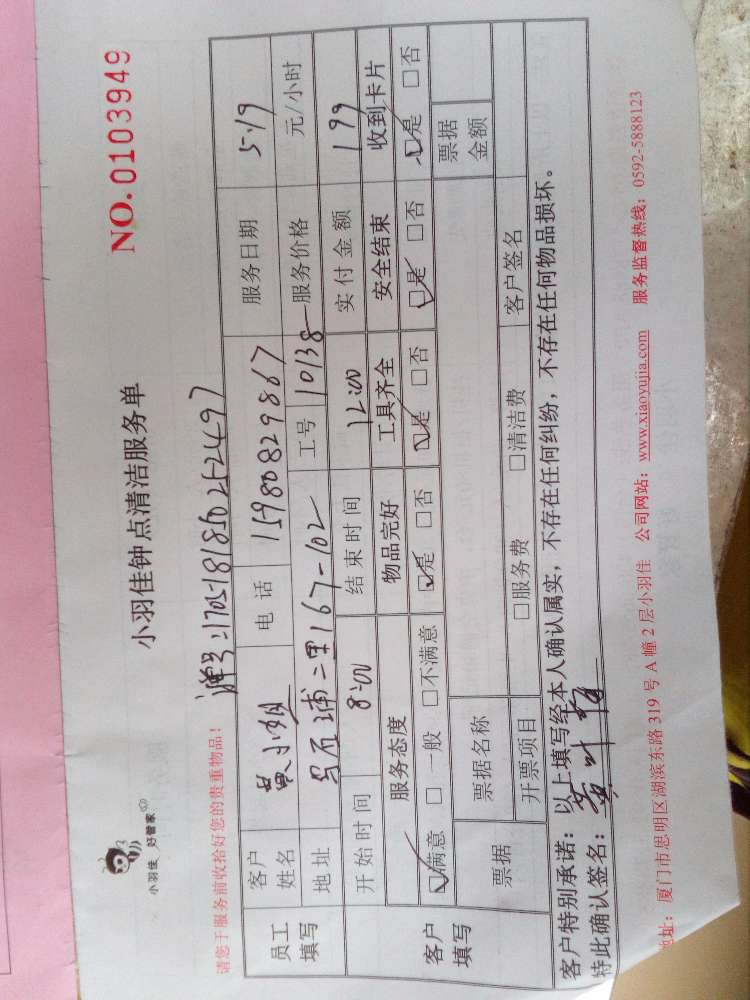 小羽佳 好管家
小羽佳钟点清洁服务单
NO.0103949
请您于服务前收拾好您的贵重物品!
单号:1705181850252497
员工填写
客户姓名 黄小姐 电话 15980829867 服务日期 5.19
地址 乌石浦二里167-102 工号 10138 服务价格 元/小时
客户填写
开始时间 8:00 结束时间 12:00 实付金额 199
服务态度 物品完好 工具齐全 安全结束 收到卡片
☑满意 □一般 □不满意 ☑是 □否 ☑是 □否 ☑是 □否 ☑是 □否
票据 票据名称 票据金额
开票项目 □服务费 □清洁费 客户签名
客户特别承诺:以上填写经本人确认属实,不存在任何纠纷,不存在任何物品损坏。
特此确认签名:
地址:厦门市思明区湖滨东路319号A幢2层小羽佳 公司网站:www.xiaoyujia.com 服务监督热线:0592-5888123